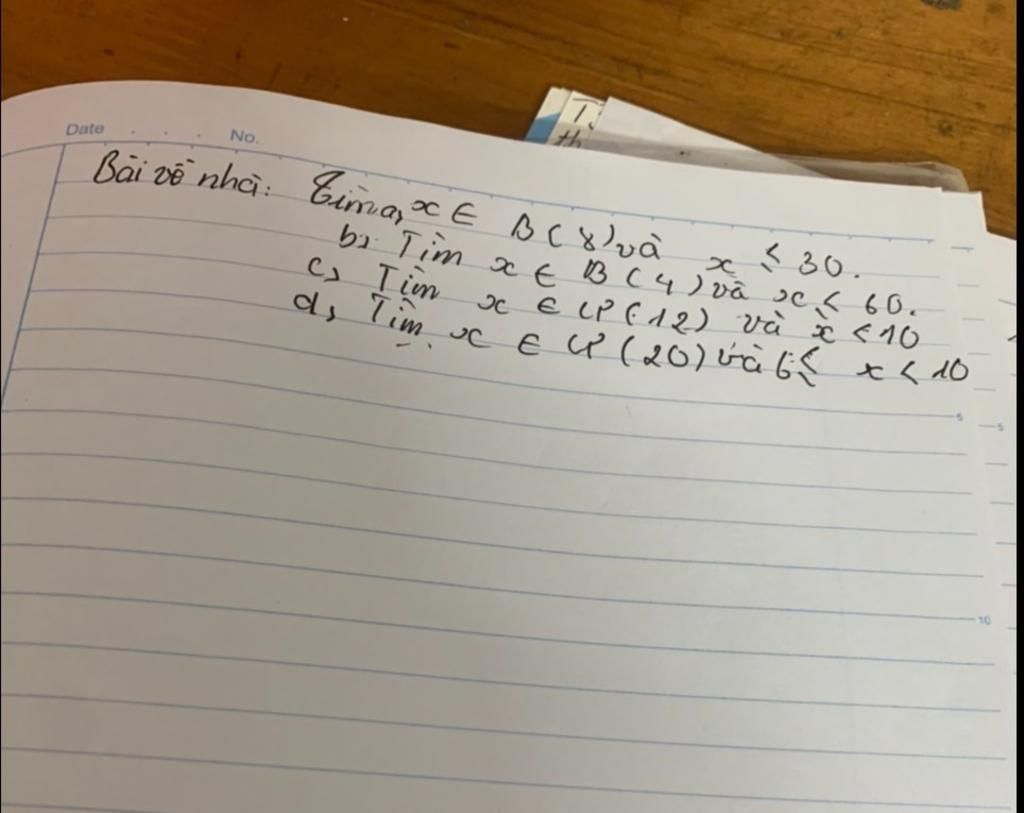 T.
th
Date . . . . No.
Bài về nhà: Tìm a, x ∈ B(8) và x ≤ 30.
b, Tìm x ∈ B(4) và x < 60.
c, Tìm x ∈ Ư(12) và x < 10
d, Tìm x ∈ Ư(20) và 6 ≤ x < 10
5
5
10